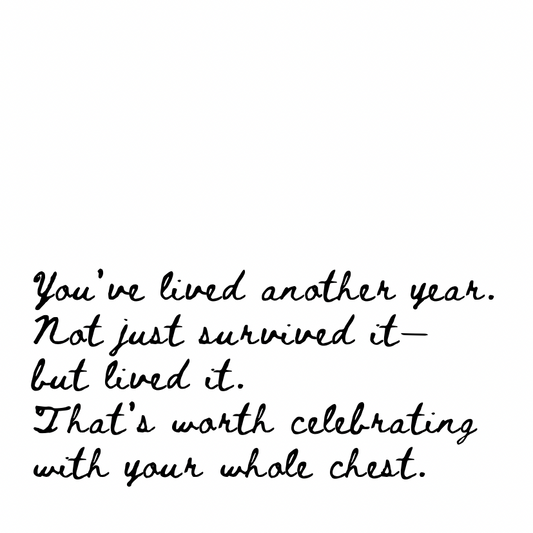 You've lived another year.
Not just survived it—
but lived it.
That's worth celebrating
with your whole chest.